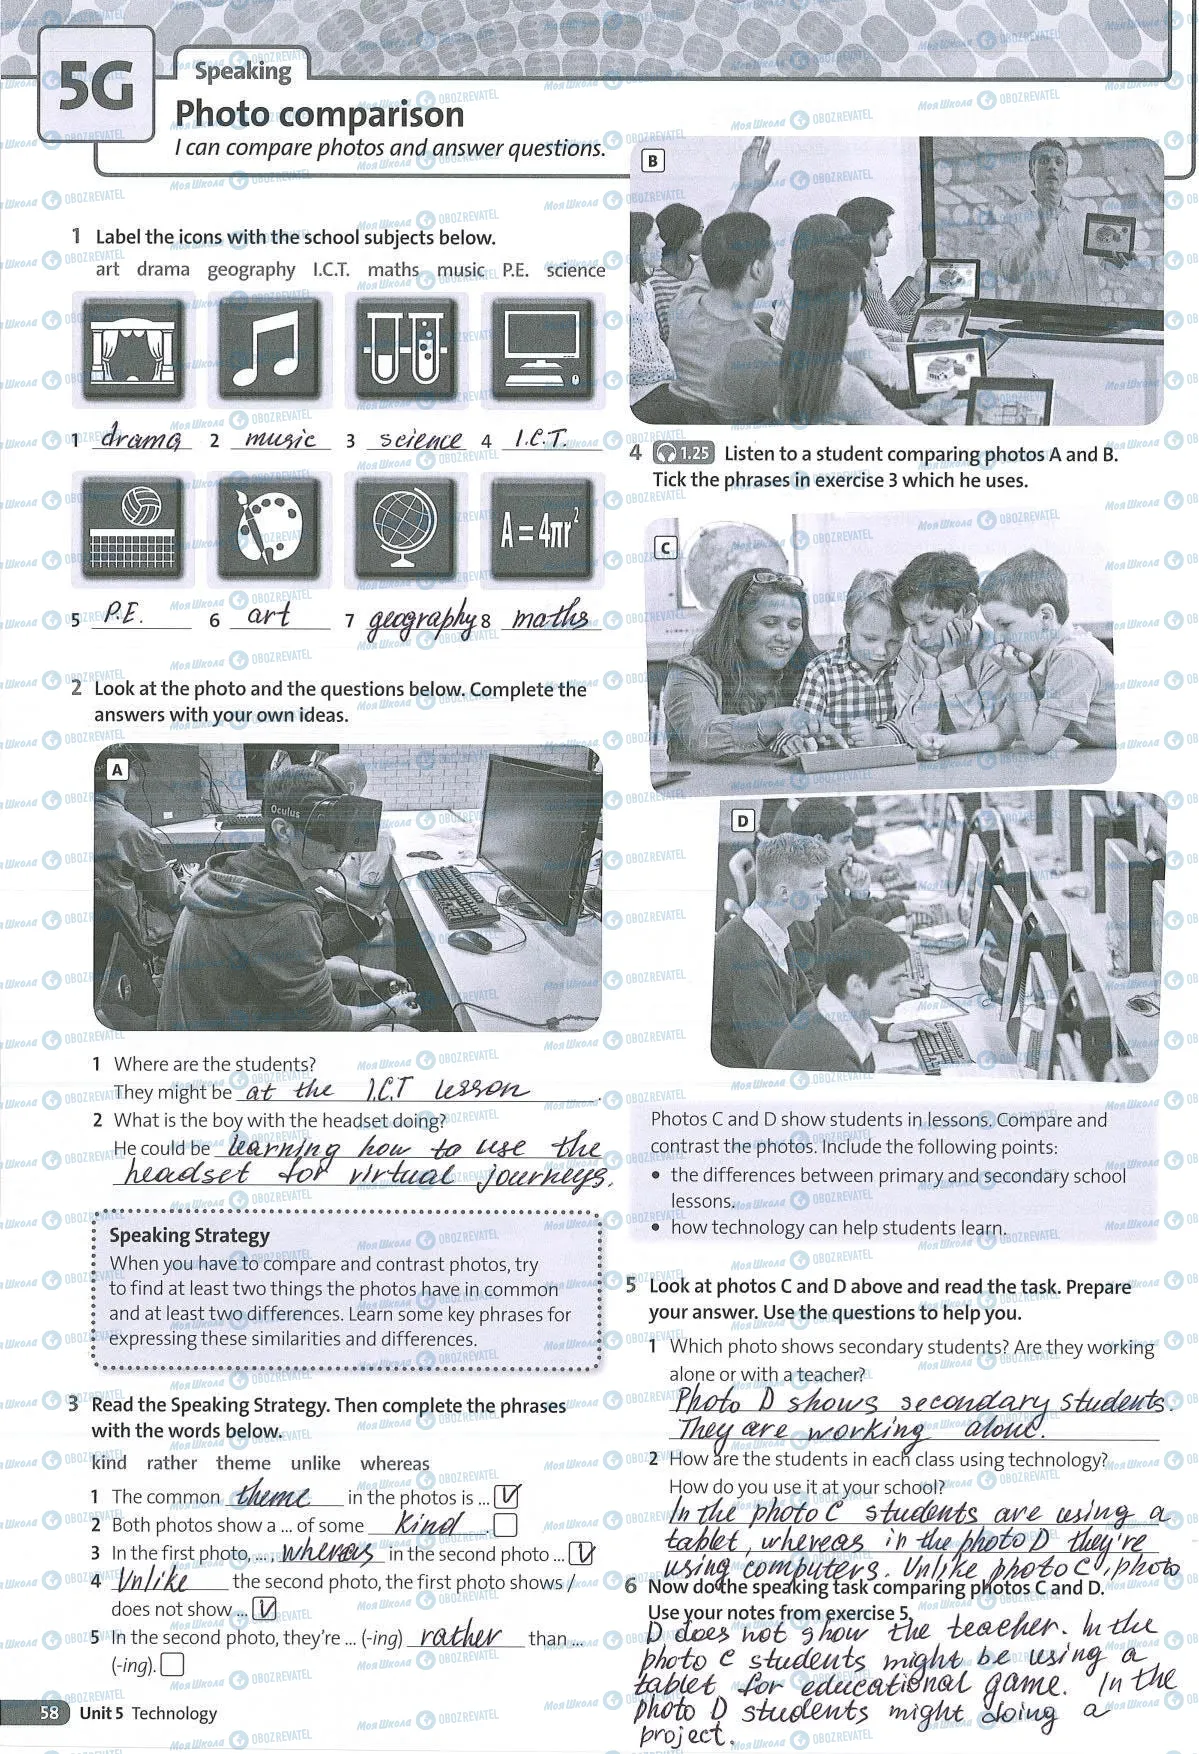 5G
Speaking
Photo comparison
I can compare photos and answer questions.
1 Label the icons with the school subjects below.
art drama geography I.C.T. maths music P.E. science
A = 4πr²
1 drama 2 music 3 science 4 I.C.T.
5 P.E. 6 art 7 geography 8 maths
2 Look at the photo and the questions below. Complete the
answers with your own ideas.
A
Oculus
1 Where are the students?
They might be at the I.C.T lesson.
2 What is the boy with the headset doing?
He could be learning how to use the
headset for virtual journeys.
Speaking Strategy
When you have to compare and contrast photos, try
to find at least two things the photos have in common
and at least two differences. Learn some key phrases for
expressing these similarities and differences.
3 Read the Speaking Strategy. Then complete the phrases
with the words below.
kind rather theme unlike whereas
1 The common theme in the photos is ... V
2 Both photos show a ... of some kind.
3 In the first photo, ... , whereas in the second photo ... V
4 Unlike the second photo, the first photo shows /
does not show ... V
5 In the second photo, they're ... (-ing) rather than ...
(-ing).
58 Unit 5 Technology
B
4 1.25 Listen to a student comparing photos A and B.
Tick the phrases in exercise 3 which he uses.
C
D
Photos C and D show students in lessons. Compare and
contrast the photos. Include the following points:
• the differences between primary and secondary school
lessons.
• how technology can help students learn.
5 Look at photos C and D above and read the task. Prepare
your answer. Use the questions to help you.
1 Which photo shows secondary students? Are they working
alone or with a teacher?
Photo D shows secondary students.
They are working alone.
2 How are the students in each class using technology?
How do you use it at your school?
In the photo C students are using a
tablet, whereas in the photo D they're
using computers. Unlike photo C, photo
6 Now do the speaking task comparing photos C and D.
Use your notes from exercise 5.
D does not show the teacher. In the
photo C students might be using a
tablet for educational game. In the
photo D students might doing a
project.
Моя Школа OBOZREVATEL